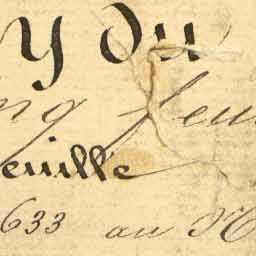 y Du
ng feui
euille
633 au